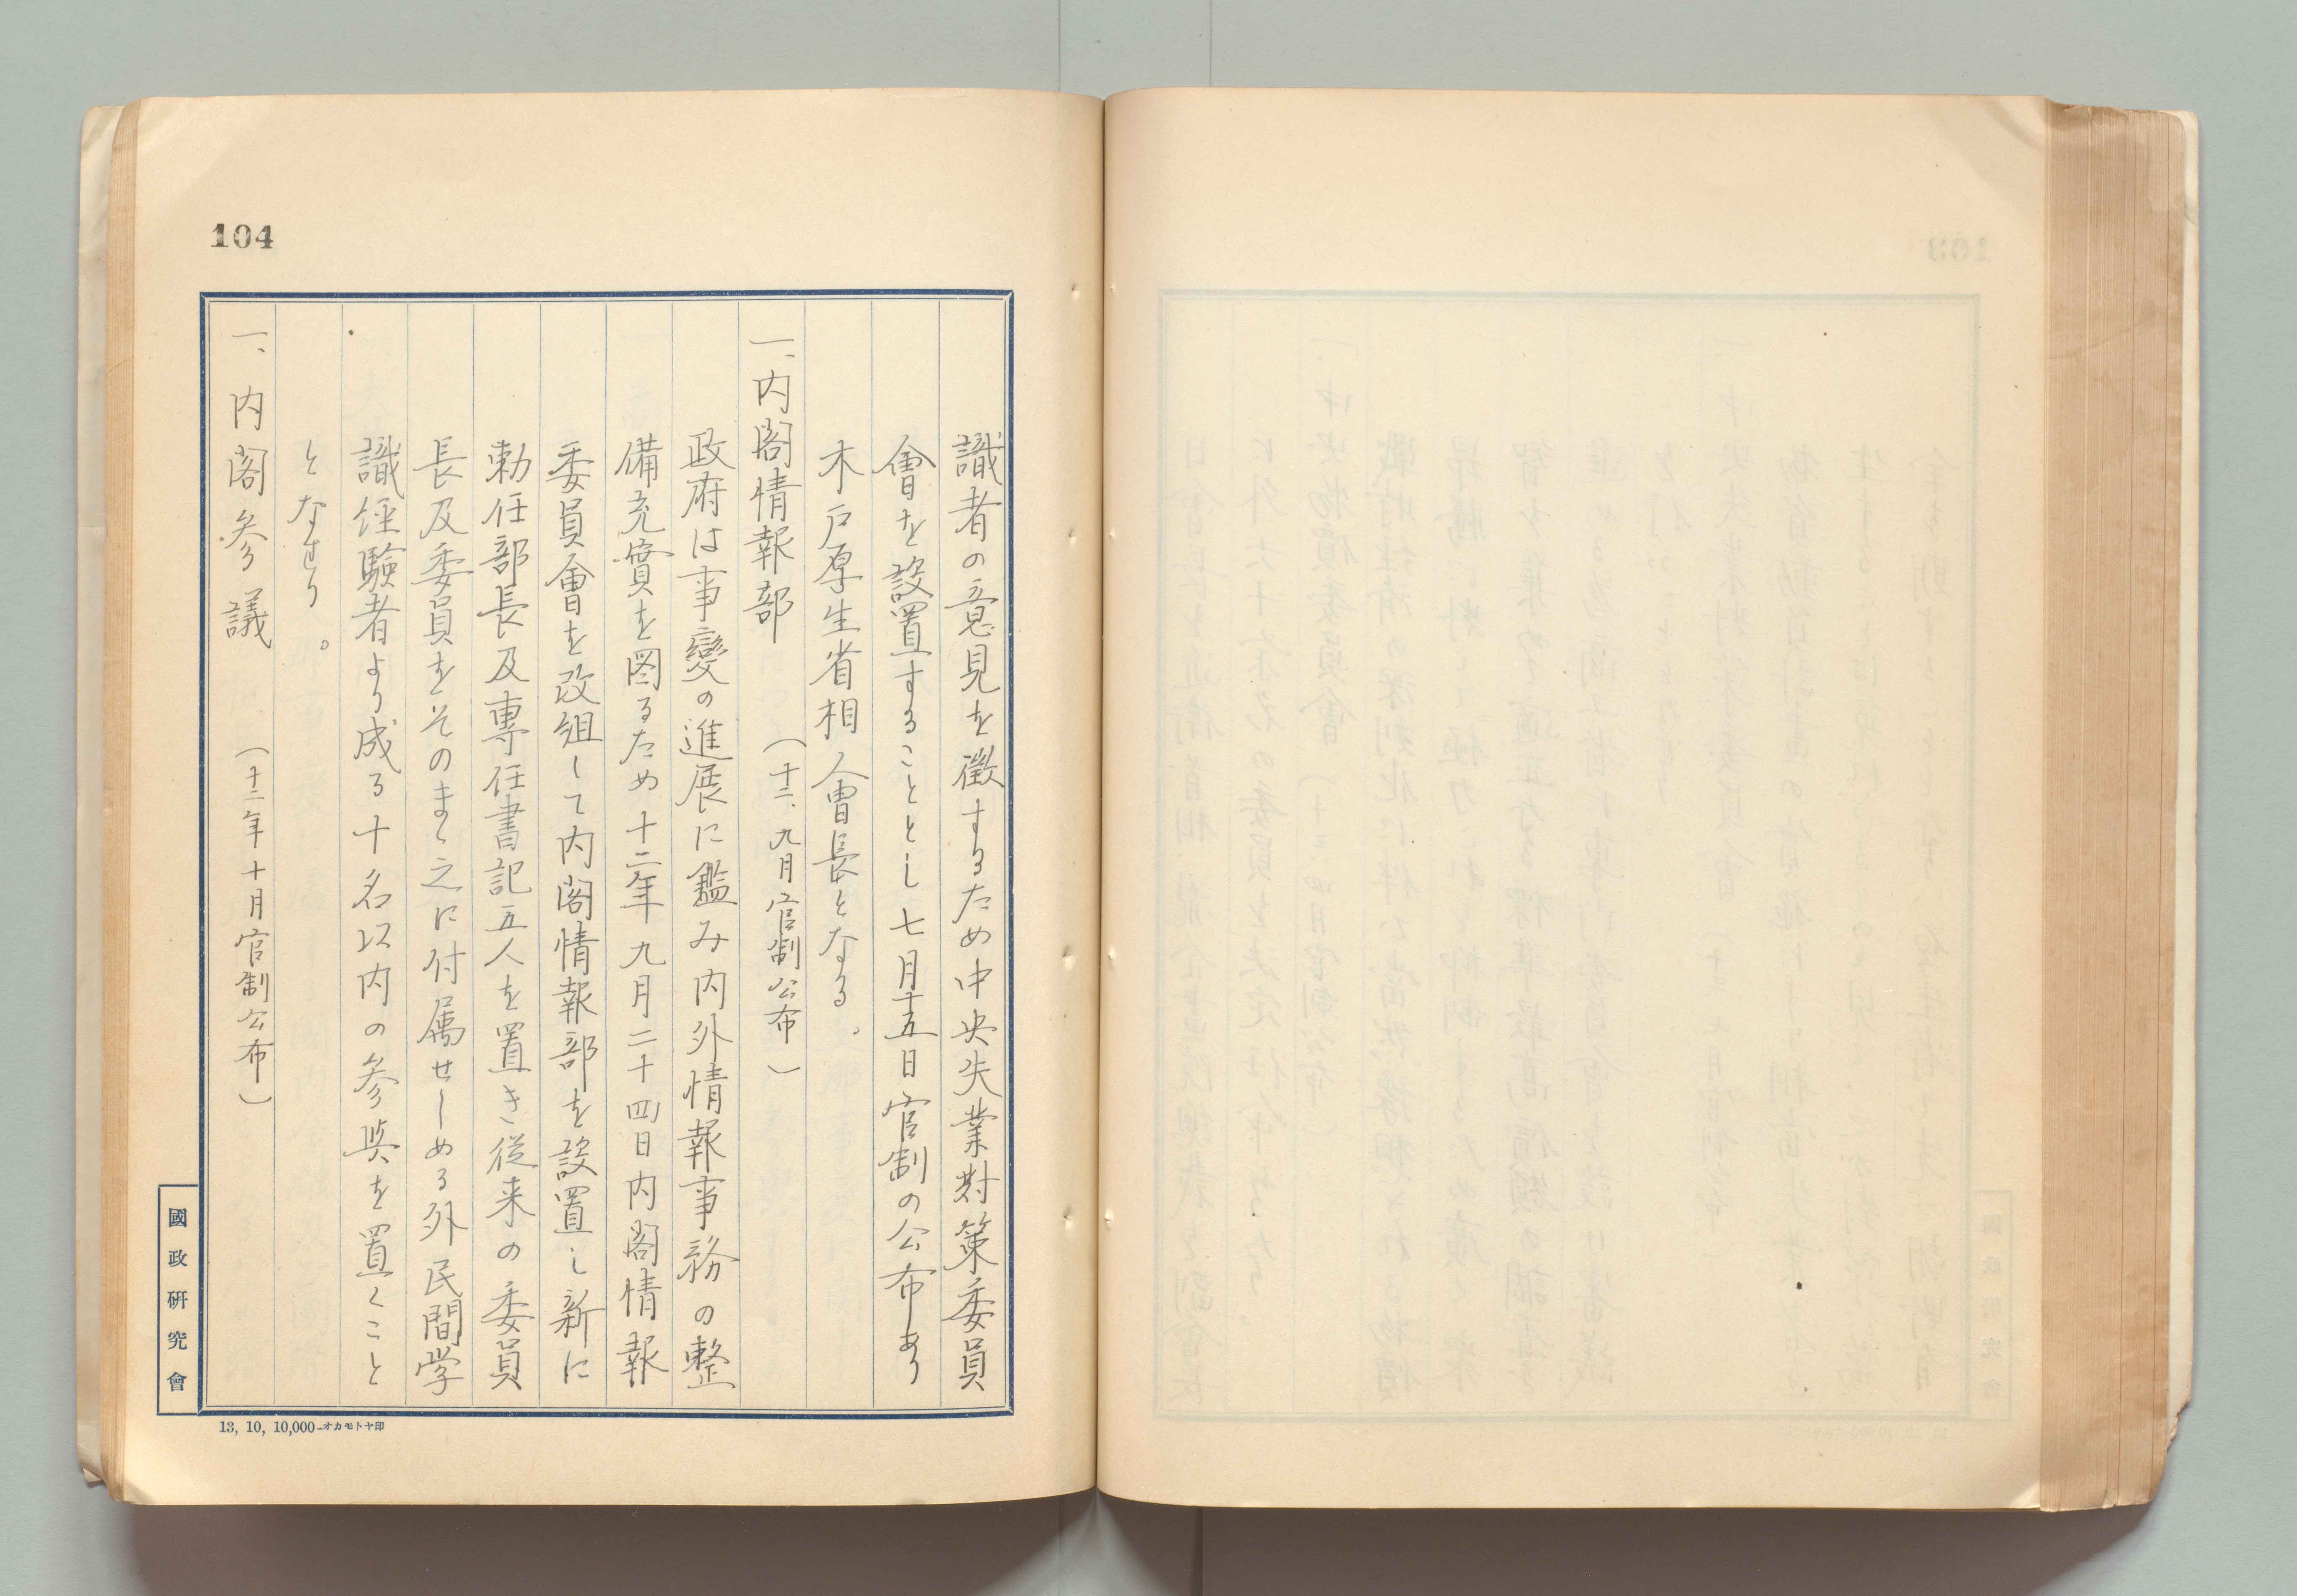 104
識者の意見を徴するため中央失業対策委員
會を設置することとし七月十五日官制の公布あり
木戸厚生省相會長となる。
一、内閣情報部　（十二、九月官制公布）
政府は事變の進展に鑑み内外情報事務の整
備充實を図るため十二年九月二十四日内閣情報
委員會を改組して内閣情報部を設置し新に
勅任部長及專任書記五人を置き従来の委員
長及委員をそのまゝ之に付属せしめる外民間学
識経験者より成る十名以内の参與を置くこと
となせり。
一、内閣参議　（十二年十月官制公布）
國政研究會
13, 10, 10,000—オカモトヤ印